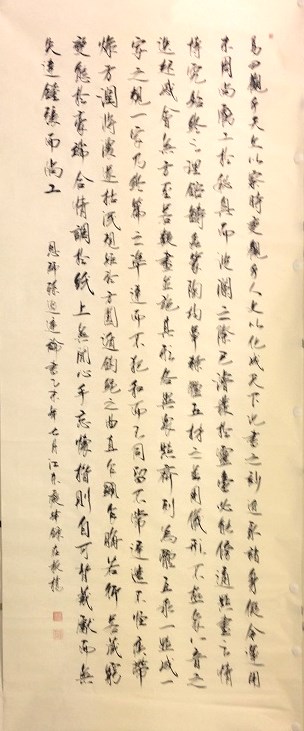 易曰觀乎天文以察時變觀乎人文以化成天下況書之妙近取諸身假令運用
未周尚虧工於秘奧而波瀾之際已濬發於靈臺必能傍通點畫之情
博究始終之理鎔鑄蟲篆陶均草隸體五材之並用儀形不極象八音之
迭起感會無方至若數畫並施其形各異眾點齊列為體互乖一點成一
字之規一字乃終篇之準違而不犯和而不同留不常遲遣不恆疾帶
燥方潤將濃遂枯泯規矩於方圓遁鉤繩之曲直乍顯乍晦若行若藏窮
變態於毫端合情調於紙上無間心手忘懷楷則自可背羲獻而無
失違鍾張而尚工
孫過庭論書乙未年七月江東